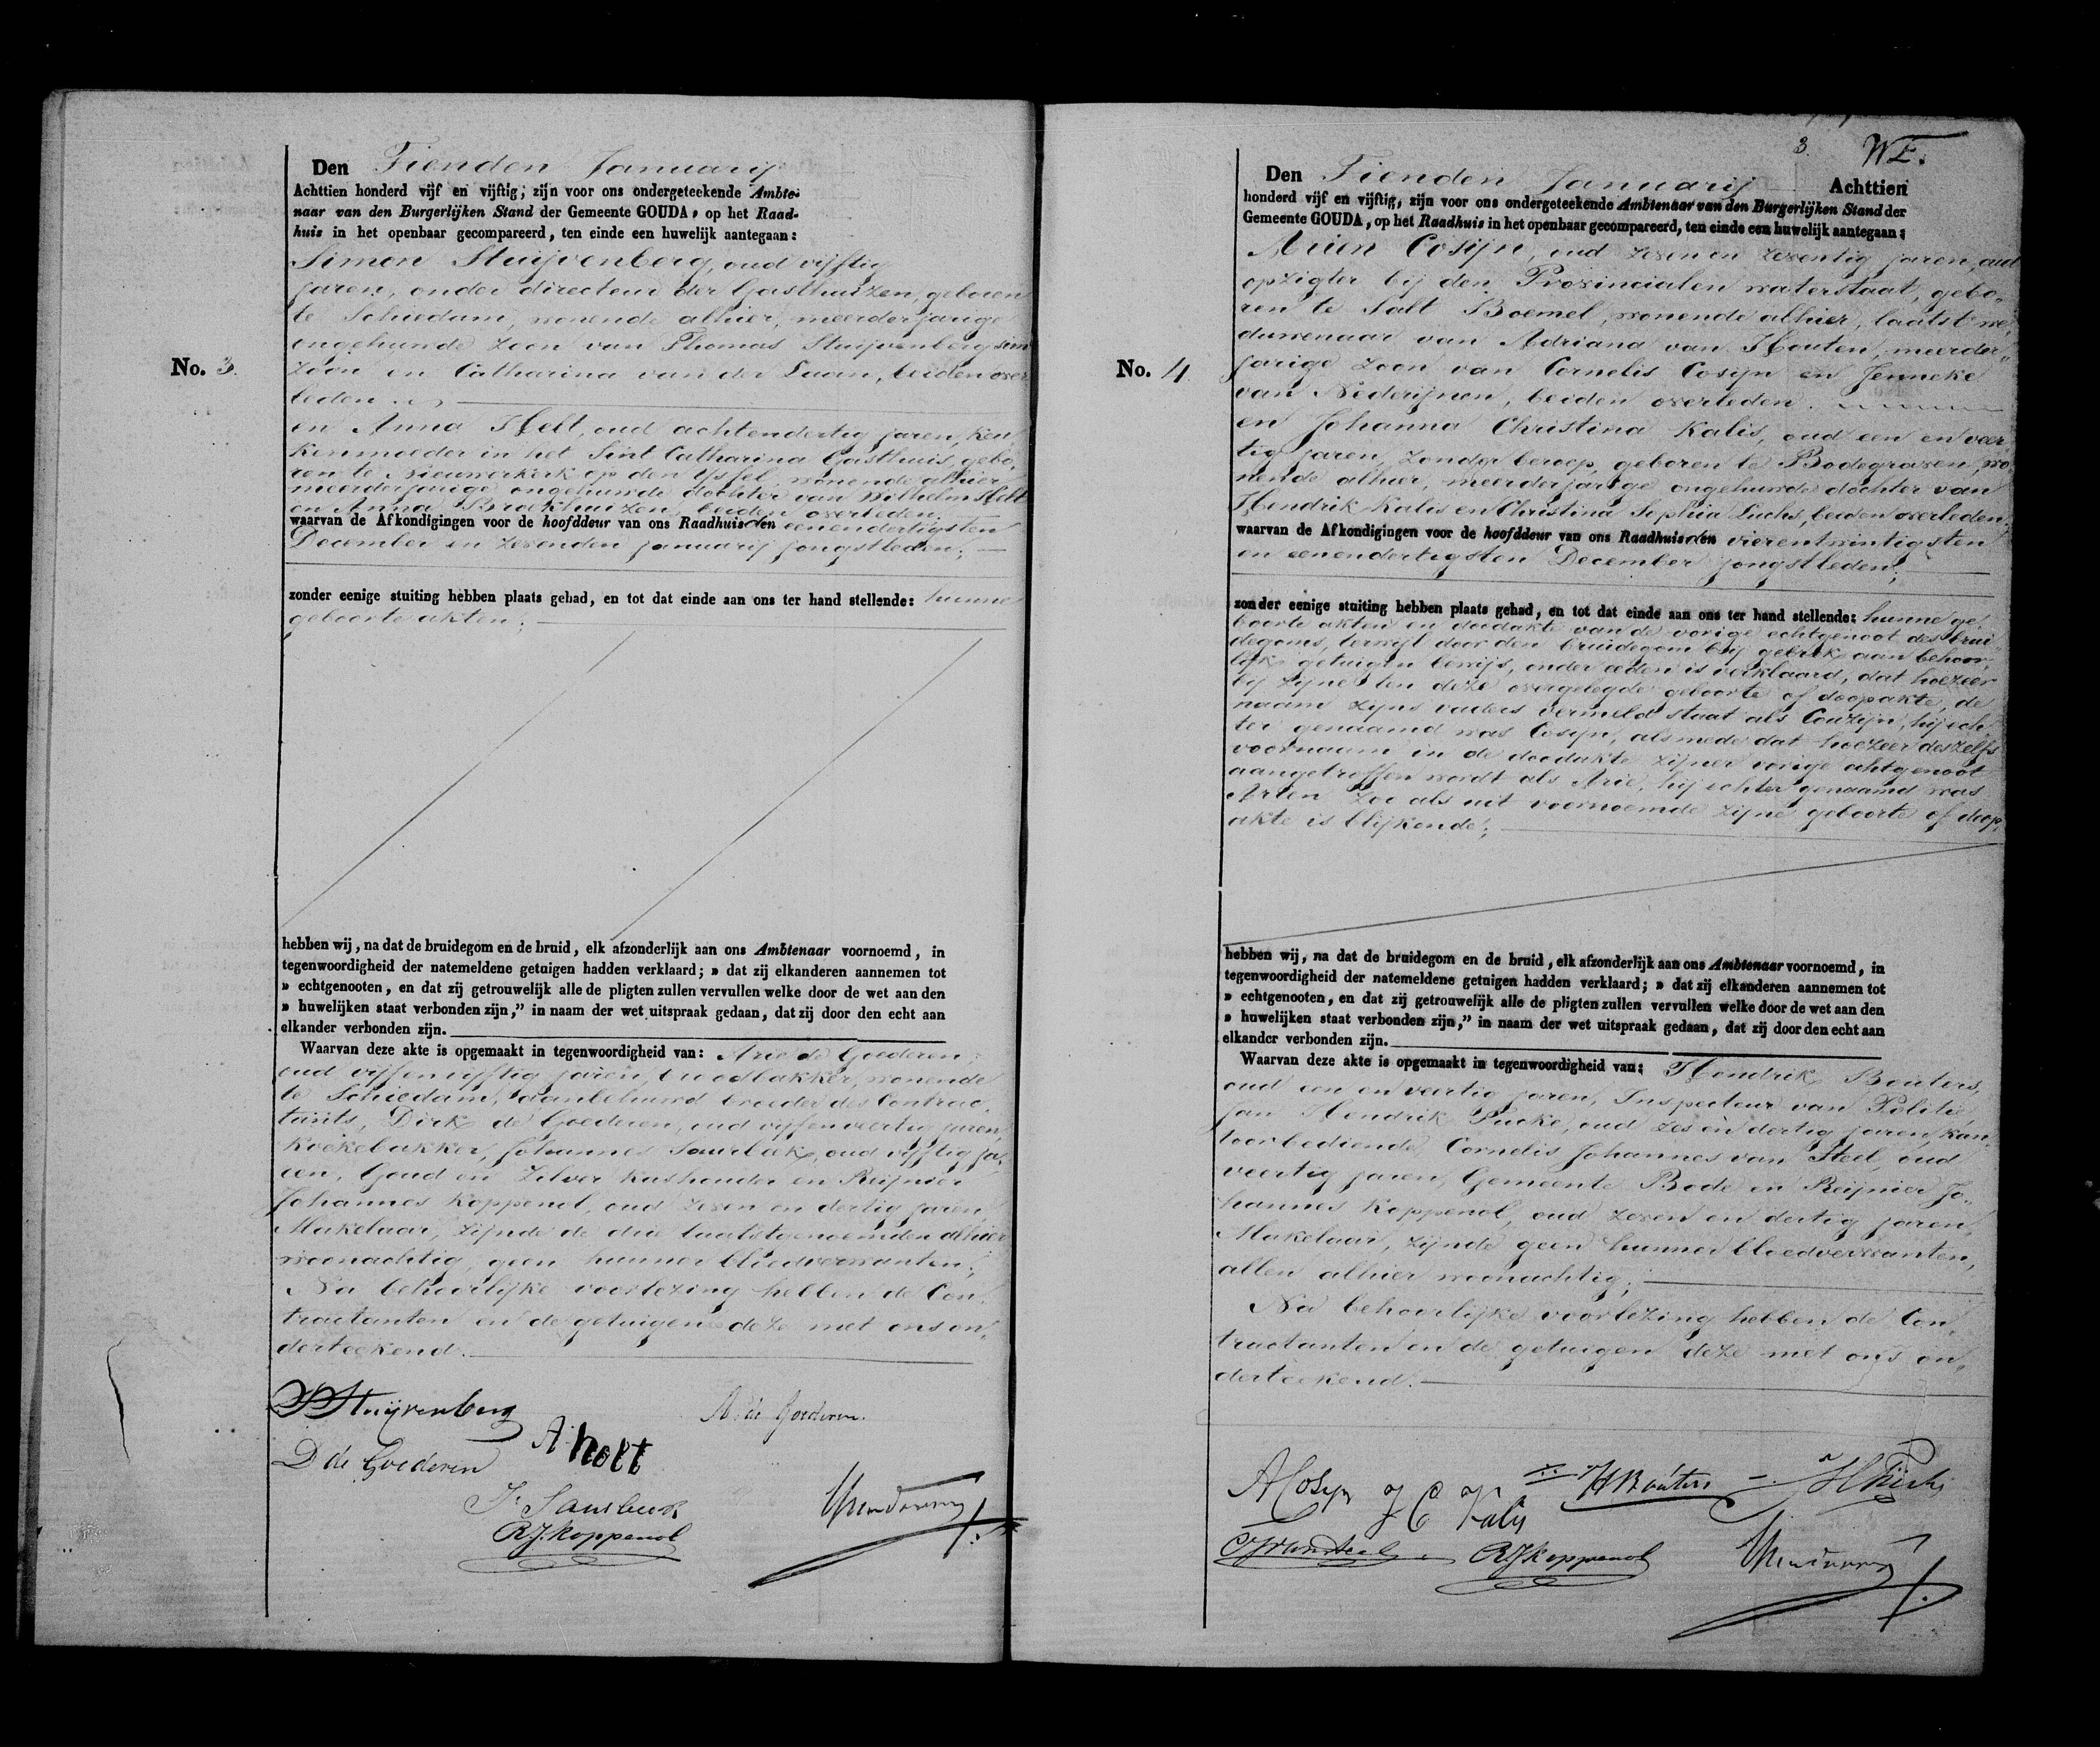 Den Tienden Januarij
Achttien honderd vijf en vijftig, zijn voor ons ondergeteekende Ambte-
naar van den Burgerlijken Stand der Gemeente GOUDA, op het Raad-
huis in het openbaar gecompareerd, ten einde een huwelijk aantegaan:
Simon Stuijvenberg, oud vijftig
jaren, onder directeur der Gasthuizen, geboren
te Schiedam, wonende alhier, meerderjarige
ongehuwde zoon van Thomas Stuijvenberg
No. 3. zoon en Catharina van der Laan, beiden over
leden.
en Anna Helt, oud achtendertig jaren, keu,
kenmoeder in het Sint Catharina Gasthuis, gebo,
ren te Nieuwerkerk op den IJssel, wonende alhier
meerderjarige ongehuwde dochter van Wilhelm Helt
en Anna Brakhuizen, beiden overleden.
waarvan de Afkondigingen voor de hoofddeur van ons Raadhuis den eenendertigsten
December en zevenden januarij jongstleden;
zonder eenige stuiting hebben plaats gehad, en tot dat einde aan ons ter hand stellende: hunne
geboorte akten;
hebben wij, na dat de bruidegom en de bruid, elk afzonderlijk aan ons Ambtenaar voornoemd, in
tegenwoordigheid der natemeldene getuigen hadden verklaard; » dat zij elkanderen aannemen tot
» echtgenooten, en dat zij getrouwelijk alle de pligten zullen vervullen welke door de wet aan den
» huwelijken staat verbonden zijn,” in naam der wet uitspraak gedaan, dat zij door den echt aan
elkander verbonden zijn.
Waarvan deze akte is opgemaakt in tegenwoordigheid van: Arie de Goederen,
oud vijfenvijftig jaren, broodbakker, wonende
te Schiedam, aanbehuwd broeder des Contrac,
tants, Dirk de Goederen, oud vijfenveertig jaren,
Koekebakker, Johannes Saurbeek, oud vijftig ja,
ren, Goud en Zilver kashouder en Reijnier
Johannes Koppenol, oud zeven en dertig jaren
Makelaar, zijnde de drie laatstgenoemden alhier
woonachtig, geen hunner bloedverwanten;
Na behoorlijke voorlezing hebben de Con,
tractanten en de getuigen deze met ons on,
derteekend.
S Stuijvenberg
A. de Goederen.
A holt
D de Goederen
J. Saurbeek
RJ. Koppenol
3. WE.
Den Tienden Januarij Achttien
honderd vijf en vijftig, zijn voor ons ondergeteekende Ambtenaar van den Burgerlijken Stand der
Gemeente GOUDA, op het Raadhuis in het openbaar gecompareerd, ten einde een huwelijk aantegaan:
Arien Cosijn, oud zeven en zeventig jaren, oud
opzigter bij den Provincialen waterstaat, gebo,
ren te Salt Boemel, wonende alhier, laatst we,
duwenaar van Adriana van Houten, meerder,
No. 4. jarige zoon van Cornelis Cosijn en Jenneke
van Nederijnen, beiden overleden.
en Johanna Christina Kalis, oud een en veer
tig jaren, zonder beroep, geboren te Bodegraven, wo
nende alhier, meerderjarige ongehuwde dochter van
Hendrik Kalis en Christina Sophia Luchs, beiden overleden;
waarvan de Afkondigingen voor de hoofddeur van ons Raadhuis den vierentwintigsten
en eenendertigsten December jongstleden;
zonder eenige stuiting hebben plaats gehad, en tot dat einde aan ons ter hand stellende: hunne ge
boorte akten en doodakte van de vorige echtgenoot des brui
degoms, terwijl door den bruidegom bij gebrek aan behoor,
lijk getuigen bewijs, onder eeden is verklaard, dat hoezeer
bij zijne ten deze overgelegde geboorte of doopakte, de
naam zijns vaders vermeld staat als Couzijn, hij ech
ter genaamd was Cosijn, alsmede dat hoezeer deszelfs
voornaam in de doodakte zijner vorige echtgenoot
aangetroffen wordt als Arie, hij echter genaamd was
Arien zoo als uit voornoemde zijne geboorte of doop,
akte is blijkende;
hebben wij, na dat de bruidegom en de bruid, elk afzonderlijk aan ons Ambtenaar voornoemd, in
tegenwoordigheid der natemeldene getuigen hadden verklaard; » dat zij elkanderen aannemen tot
» echtgenooten, en dat zij getrouwelijk alle de pligten zullen vervullen welke door de wet aan den
» huwelijken staat verbonden zijn,” in naam der wet uitspraak gedaan, dat zij door den echt aan
elkander verbonden zijn.
Waarvan deze akte is opgemaakt in tegenwoordigheid van: Hendrik Bouters,
oud een en veertig jaren, Inspecteur van Politie,
Jan Hendrik Pucke, oud zes en dertig jaren, kan,
toorbediende, Cornelis Johannes van Steel, oud
veertig jaren, Gemeente Bode en Reijnier Jo,
hannes Koppenol, oud zeven en dertig jaren,
Makelaar, zijnde geen hunner bloedverwanten,
allen alhier woonachtig;
Na behoorlijke voorlezing hebben de Con,
tractanten en de getuigen deze met ons on,
derteekend.
A Cosijn J C Kalis H Bouters
CJ van Steel RJ Koppenol